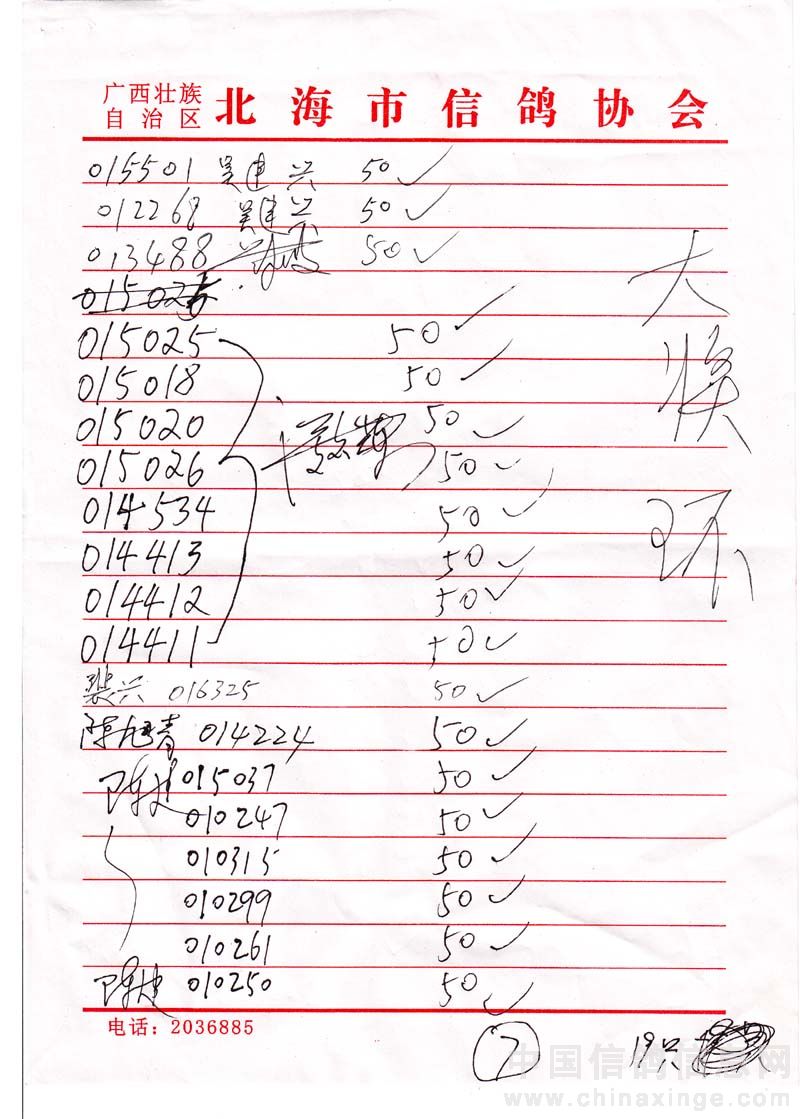 广西壮族
自治区
北海市信鸽协会
015501 吴建兴 50 ✓
012268 吴建兴 50 ✓
013488 50 ✓
015025 50 ✓
015018 50 ✓
015020 50 ✓
015026 50 ✓
014534 50 ✓
014413 50 ✓
014412 50 ✓
014411 50 ✓
大奖环
裴兴 016325 50 ✓
陈旭青 014224 50 ✓
陈建 015037 50 ✓
010247 50 ✓
010315 50 ✓
010299 50 ✓
010261 50 ✓
陈建 010250 50 ✓
电话：2036885
7
19只
中国信鸽信息网
www.chinaxinge.com